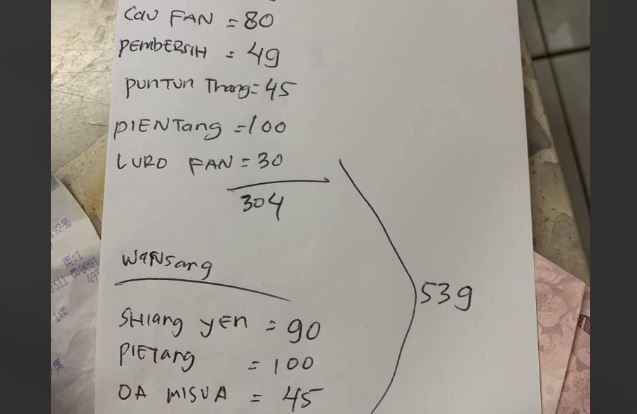 CAU FAN = 80
PEMBERSIH = 49
PUNTUN Thang = 45
PIENTang = 100
LURO FAN = 30
304
WANSang
539
SHIang YEN = 90
PIETang = 100
DA MISUA = 45